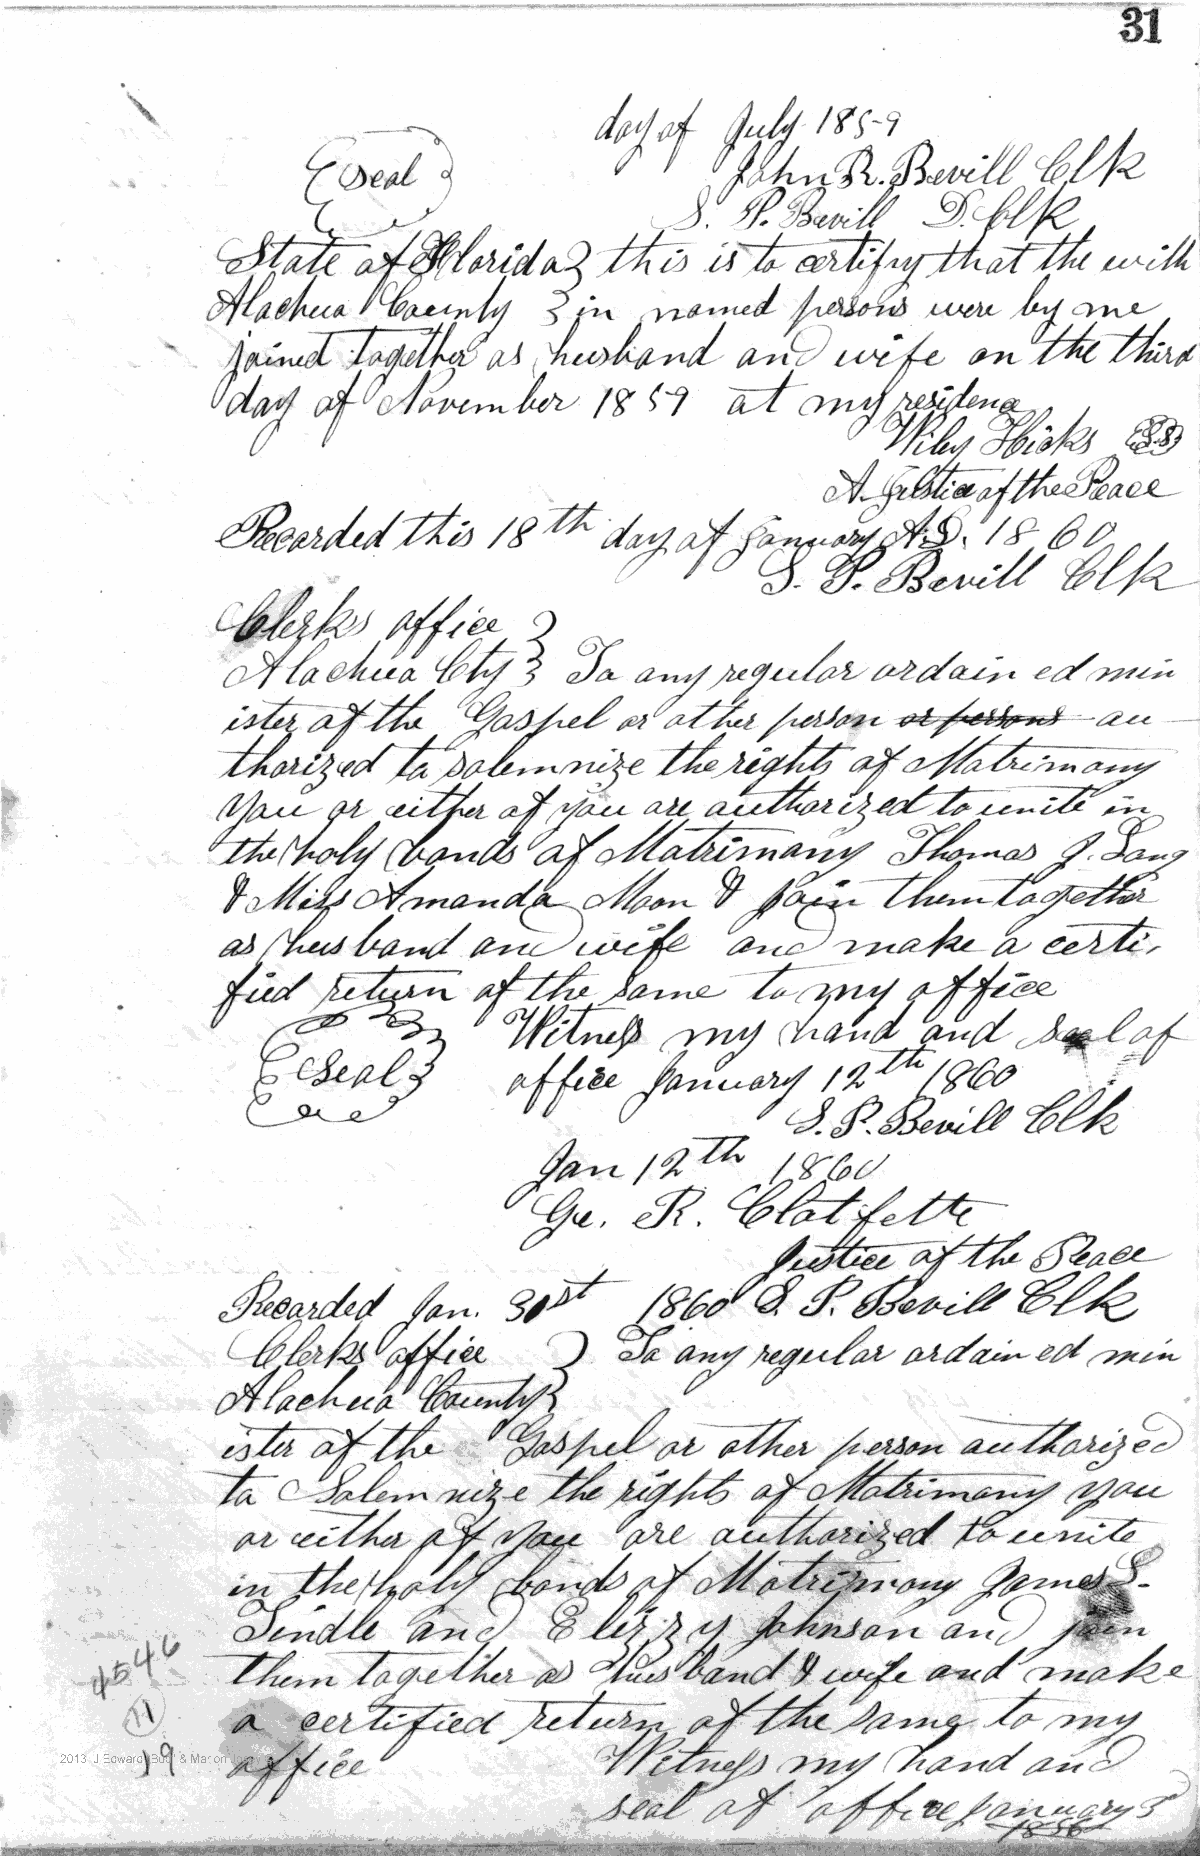 31
day of July 1859
Seal
John R. Bevill Clk
S. P. Bevill D. Clk
State of Florida } this is to certify that the with
Alachua County } in named persons were by me
joined together as husband and wife on the third
day of November 1859 at my residence
Wiley Hicks
A Justice of the Peace
Recorded this 18th day of January A.D. 1860
S. P. Bevill Clk
Clerks office }
Alachua Cty } To any regular ordain ed min
ister of the Gospel or other person or persons au
thorized to solemnize the rights of Matrimony
you or either of you are authorized to unite in
the holy bonds of Matrimony Thomas J. Lang
& Miss Amanda Moon & join them together
as husband and wife and make a certi-
fied return of the same to my office
Witness my hand and seal of
Seal
office January 12th 1860
S. P. Bevill Clk
Jan 12th 1860
Ge. R.
Justice of the Peace
Recorded Jan. 30st 1860 S. P. Bevill Clk
Clerks office } To any regular ordain ed min
Alachua County }
ister of the Gospel or other person authorized
to Solemnize the rights of Matrimony you
or either of you are authorized to unite
in the holy bonds of Matrimony James S.
Tindle and Elizzy Johnson and join
them together as husband & wife and make
a certified return of the same to my
office Witness my hand and
seal of office January 5
1856
4546
11
19
2013 J Edward & Marion